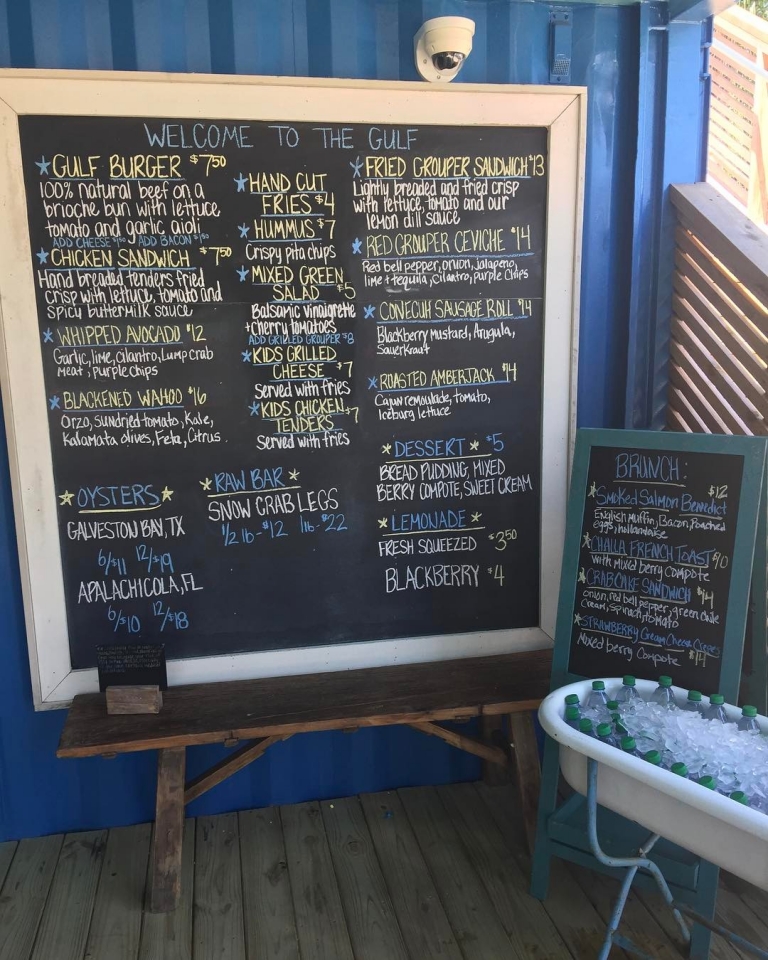 WELCOME TO THE GULF
★GULF BURGER $7.50
100% natural beef on a
brioche bun with lettuce
tomato and garlic aioli
ADD CHEESE ADD BACON
★CHICKEN SANDWICH $7.50
Hand breaded tenders fried
crisp with lettuce, tomato and
spicy buttermilk sauce
★WHIPPED AVOCADO $12
Garlic, lime, cilantro, Lump crab
meat, purple chips
★BLACKENED WAHOO $16
Orzo, sundried tomato, Kale,
Kalamata olives, Feta, Citrus.
★OYSTERS★
GALVESTON BAY, TX
6/$11 12/$19
APALACHICOLA, FL
6/$10 12/$18
★HAND CUT
FRIES $4
★HUMMUS $7
Crispy pita chips
★MIXED GREEN
SALAD $5
Balsamic vinaigrette
+cherry tomatoes
ADD GRILLED GROUPER $8
★KIDS GRILLED
CHEESE $7
Served with fries
★KIDS CHICKEN
TENDERS $7
Served with fries
★RAW BAR★
SNOW CRAB LEGS
1/2 lb-$12 1lb-$22
★FRIED GROUPER SANDWICH $13
Lightly breaded and fried crisp
with lettuce, tomato and our
lemon dill sauce
★RED GROUPER CEVICHE $14
Red bell pepper, onion, jalapeno,
lime + tequila, cilantro, purple chips
★CONECUH SAUSAGE ROLL $14
Blackberry mustard, Arugula,
Sauerkraut
★ROASTED AMBERJACK $14
Cajun remoulade, tomato,
Iceburg lettuce
★DESSERT★ $5
BREAD PUDDING, MIXED
BERRY COMPOTE, SWEET CREAM
★LEMONADE★
FRESH SQUEEZED $3.50
BLACKBERRY $4
BRUNCH:
★Smoked Salmon Benedict $12
English Muffin, Bacon, Poached
eggs, hollandaise
★CHALLA FRENCH TOAST $10
with mixed berry compote
★CRABCAKE SANDWICH $14
onion, red bell pepper, green chile
cream, spinach, tomato
★STRAWBERRY Cream Cheese Crepes
Mixed berry Compote $14